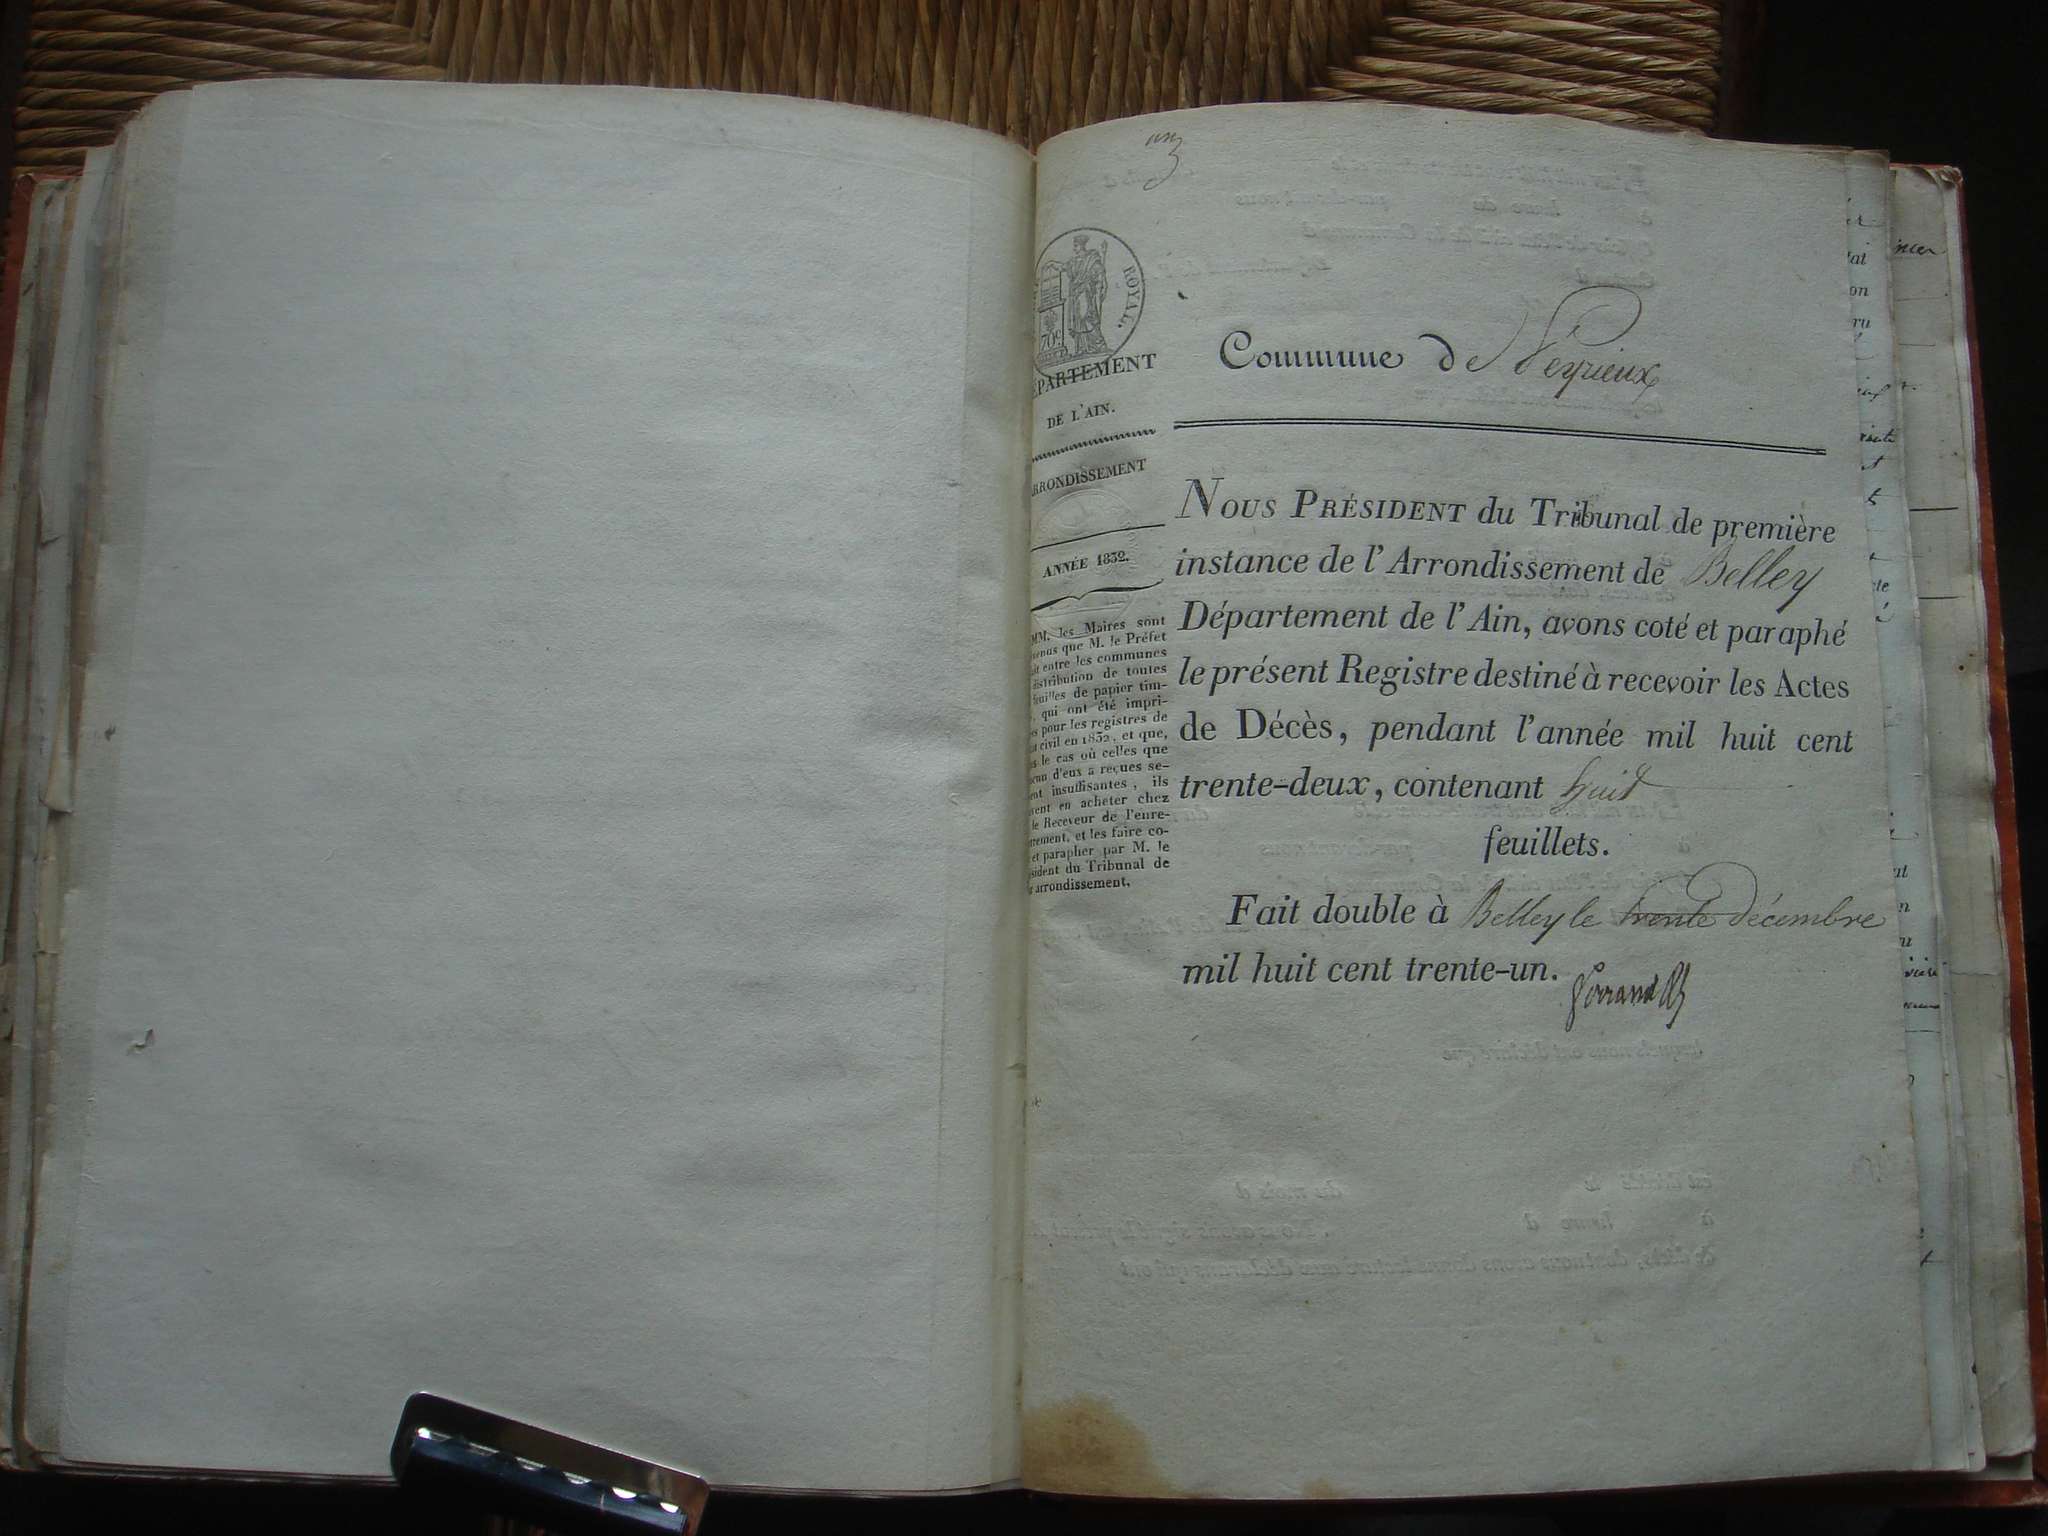 ROYAL.
70c
PARTEMENT
DE L'AIN.
RRONDISSEMENT
ANNÉE 1832.
MM. les Maires sont
que M. le Préfet
entre les communes
distribution de toutes
feuilles de papier tim-
, qui ont été impri-
pour les registres de
civil en 1832, et que,
le cas où celles que
d'eux a reçues se-
insuffisantes, ils
en acheter chez
le Receveur de l'enre-
et les faire co-
et parapher par M. le
du Tribunal de
arrondissement.
Commune de Peyrieux
NOUS PRÉSIDENT du Tribunal de première
instance de l'Arrondissement de Belley
Département de l'Ain, avons coté et paraphé
le présent Registre destiné à recevoir les Actes
de Décès, pendant l'année mil huit cent
trente-deux, contenant huit
feuillets.
Fait double à Belley le trente décembre
mil huit cent trente-un.